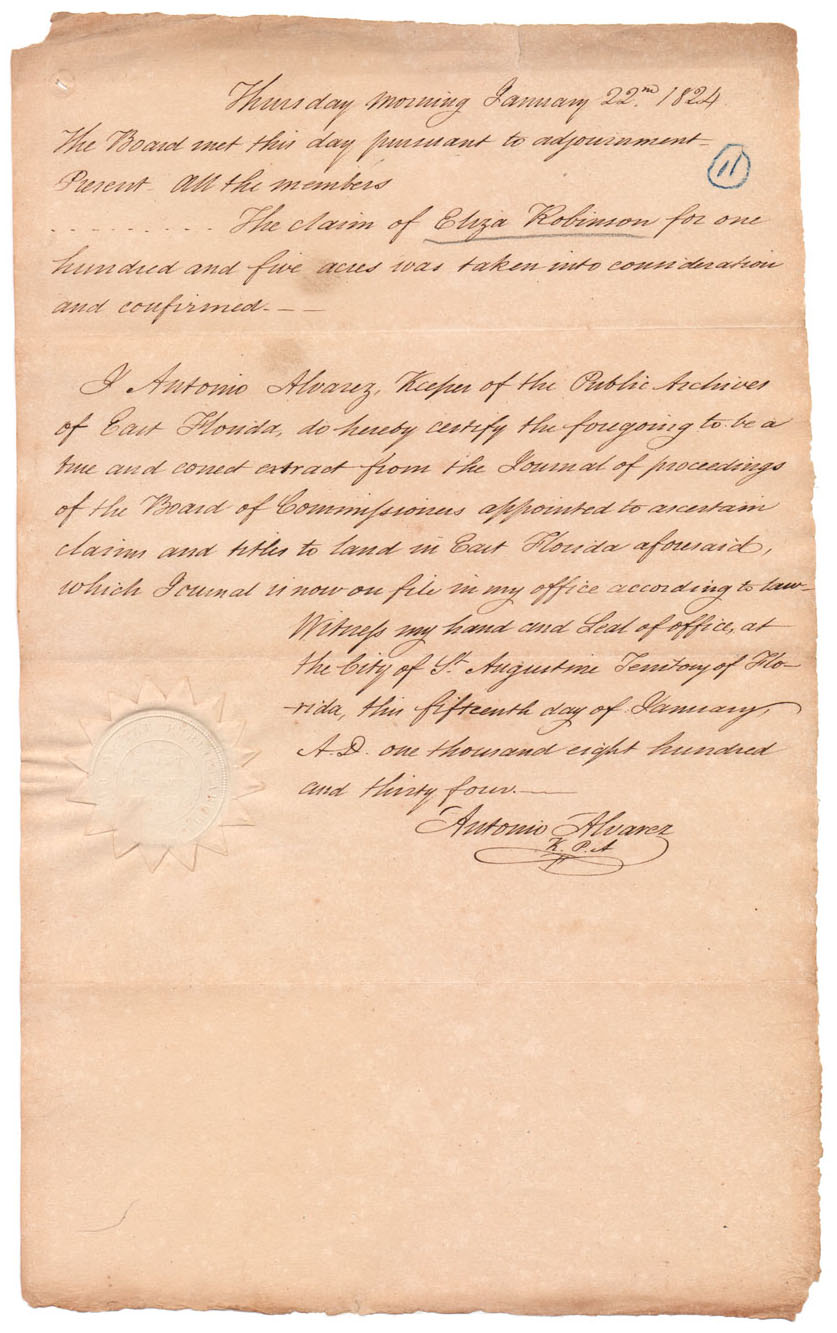 Thursday Morning January 22nd. 1824
The Board met this day pursuant to adjournment-
Present. All the members
.......... The claim of Eliza Robinson for one
hundred and five acres was taken into consideration
and confirmed. — —
11
I Antonio Alvarez, Keeper of the Public Archives
of East Florida, do hereby certify the foregoing to be a
true and correct extract from the Journal of proceedings
of the Board of Commissioners appointed to ascertain
claims and titles to land in East Florida aforesaid,
which Journal is now on file in my office according to law-
Witness my hand and Seal of office, at
the City of St. Augustine Territory of Flo-
-rida, this fifteenth day of January,
A.D. one thousand eight hundred
and thirty four.—
Antonio Alvarez
K. P. A